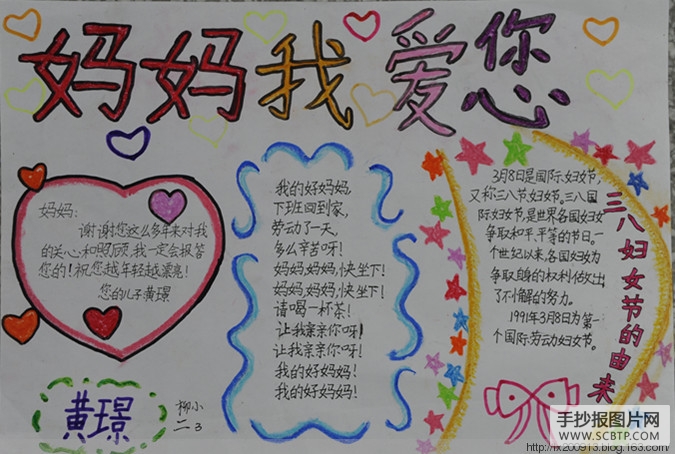 妈妈我爱您
妈妈:
谢谢您这么多年来对我
的关心和照顾,我一定会报答
您的!祝您越年轻越漂亮!
您的儿子黄璟
黄璟
柳小
二3
我的好妈妈,
下班回到家,
劳动了一天,
多么辛苦呀!
妈妈,妈妈,快坐下!
妈妈,妈妈,快坐下!
请喝一杯茶!
让我亲亲你呀!
让我亲亲你呀!
我的好妈妈!
我的好妈妈!
3月8日是国际妇女节,
又称三八节,妇女节。三八国
际妇女节,是世界各国妇女
争取和平、平等的节日。一
个世纪以来,各国妇女为
争取自身的权利做出
了不懈的努力。
1991年3月8日为第一
个国际劳动妇女节。
三八妇女节的由来
手抄报图片网
www.SCBTP.com
http://lx200913.blog.163.com/